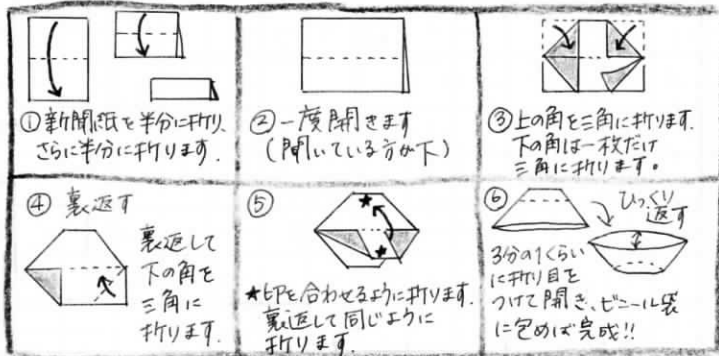 ①新聞紙を半分に折り、
さらに半分に折ります.
②一度開きます
(開いている方が下)
③上の角を三角に折ります.
下の角は一枚だけ
三角に折ります。
④ 裏返す
裏返して
下の角を
三角に
折ります.
⑤
★印を合わせるように折ります.
裏返して同じように
折ります.
⑥
ひっくり
返す
3分の1くらい
に折り目を
つけて開き、ビニール袋
に包めば完成!!